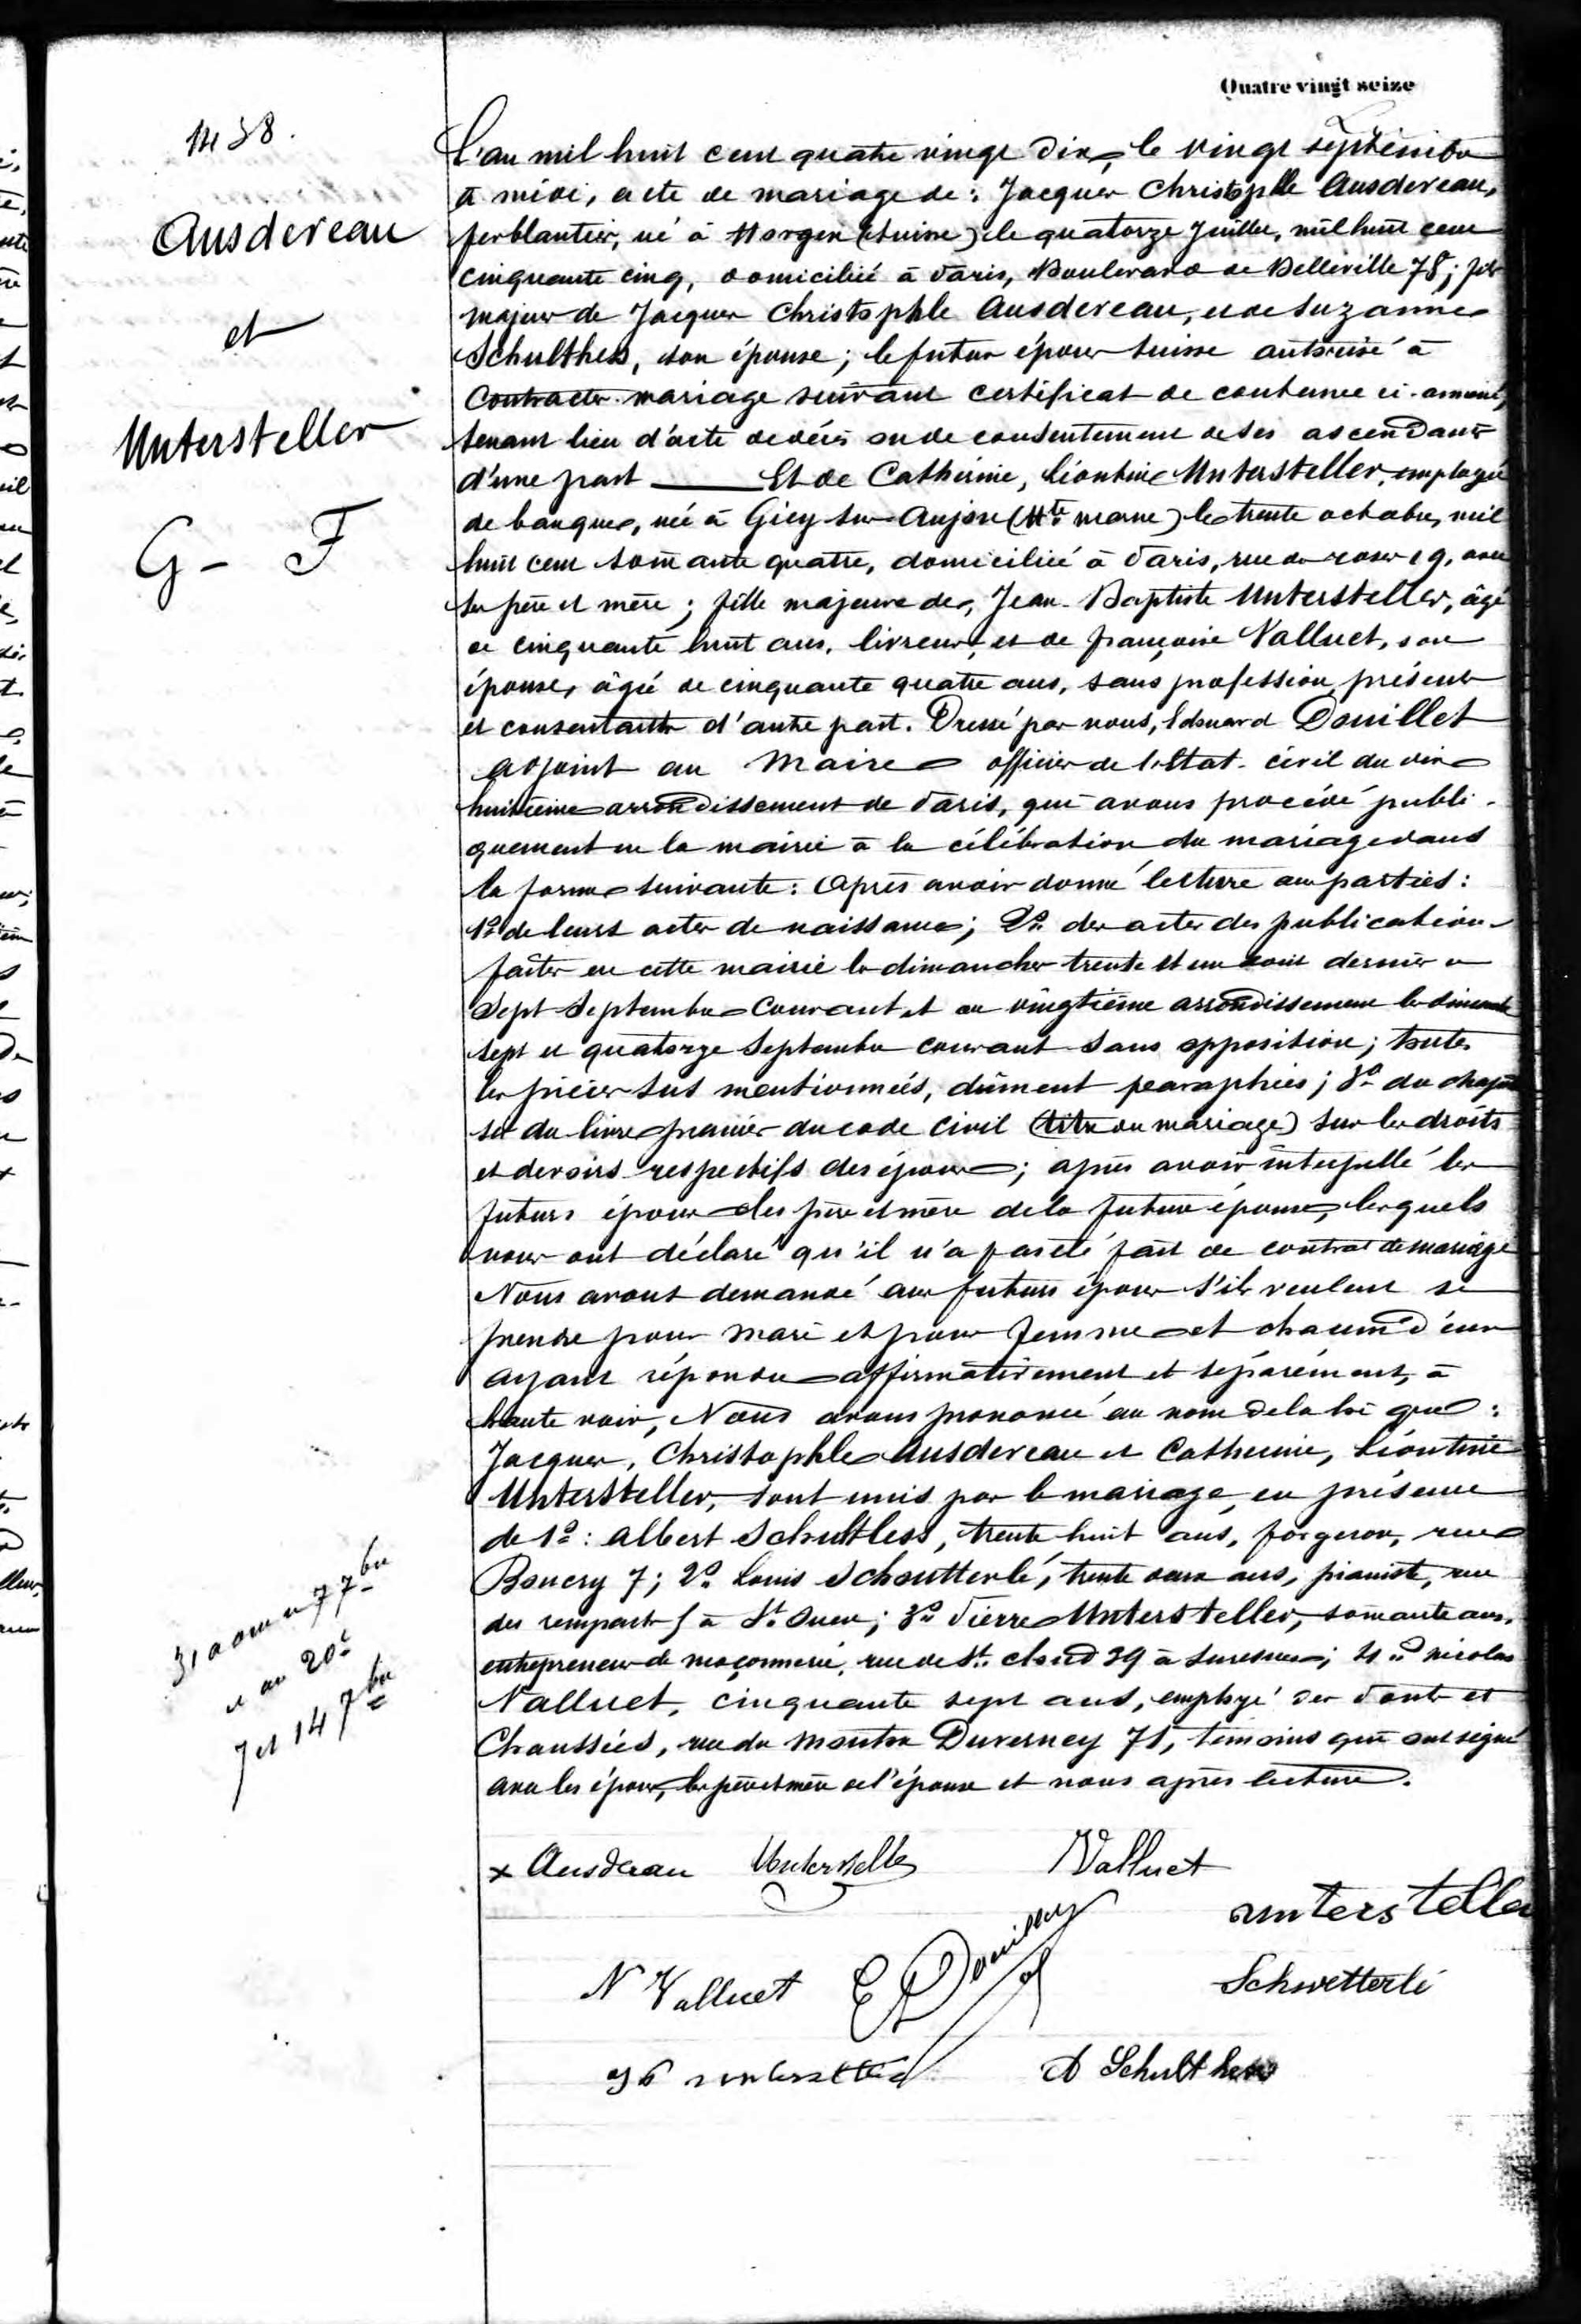 Quatre vingt seize
1438.
Ausdereau
et
Untersteller
G - F
L'an mil huit cent quatre vingt dix, le vingt septembre
à midi, acte de mariage de: Jacques Christophle Ausdereau,
ferblantier, né à Horgen (Suisse) le quatorze Juillet, mil huit cent
cinquante cinq, domicilié à Paris, Boulevard de Belleville 78; fils
majeur de Jacques Christophle Ausdereau, et de Suzanne
Schulthess, son épouse; le futur époux suisse autorisé à
Contracter mariage suivant certificat de coutume ci-annexé,
tenant lieu d'acte de décès ou de consentement de ses ascendants
d'une part ——— Et de Catherine, Léontine Untersteller, employée
de banque, née à Giey-sur-Aujon (Hte marne) le trente octobre, mil
huit cent soixante quatre, domiciliée à Paris, rue des roses 19, avec
ses père et mère; fille majeure de, Jean-Baptiste Untersteller, âgé
de cinquante huit ans, livreur, et de françoise Valluet, son
épouse, âgée de cinquante quatre ans, sans profession, présents
et consentants d'autre part. Dressé par nous, Edouard Douillet
adjoint au Maire officier de l'Etat-civil du dix
huitième arrondissement de Paris, qui avons procédé publi-
quement en la mairie à la célébration du mariage dans
la forme suivante: Après avoir donné lecture aux parties:
1º de leurs actes de naissance; 2º des actes des publications
faites en cette mairie les dimanches trente et un août dernier et
Sept Septembre Courant et au vingtième arrondissement les dimanches
sept et quatorze Septembre courant sans opposition; toutes
les pièces sus mentionnées, dûment paraphées; 3º du chapitre
six du livre premier du code Civil (titre du mariage) sur les droits
et devoirs respectifs des époux; après avoir interpellé les
futurs époux et les père et mère de la future épouse, lesquels
nous ont déclaré qu'il n'a pas été fait de contrat de mariage
Nous avons demandé aux futurs époux s'ils veulent se
prendre pour mari et pour femme et chacun d'eux
ayant répondu affirmativement et séparément, à
haute voix, Nous avons prononcé au nom de la loi que:
Jacques, Christophle Ausdereau et Catherine, Léontine
Untersteller, sont unis par le mariage, en présence
de 1º: Albert Schultless, trente huit ans, forgeron, rue
Boucry 7; 2º Louis Schoutterlé, trente deux ans, pianiste, rue
des rempart à St Ouen; 3º Pierre Untersteller, soixante ans,
entrepreneur de maçonnerie, rue de St. cloud 39 à Suresnes; 4º nicolas
Valluet, cinquante sept ans, employé des Ponts et
Chaussées, rue du Mouton Duverney 71, témoins qui ont signé
avec les époux, les père et mère de l'épouse et nous après lecture.
31 août et 7 7bre
et au 20e
7 et 14 7bre
x Ausdereau Untersteller Valluet
untersteller
N Valluet E Douillet Schwetterlé
A Schulthess